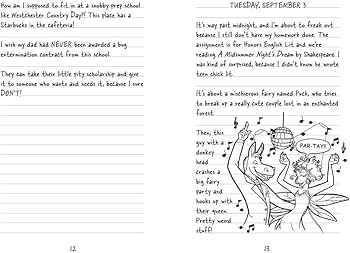 How am I supposed to fit in at a snobby prep school
like Westchester Country Day?! This place has a
Starbucks in the cafeteria!
I wish my dad had NEVER been awarded a bug
extermination contract from this school.
They can take their little pity scholarship and give
it to someone who wants and needs it, because I sure
DON'T!
12
TUESDAY, SEPTEMBER 3
It's way past midnight, and I'm about to freak out
because I still don't have my homework done. The
assignment is for Honors English Lit and we're
reading A Midsummer Night's Dream by Shakespeare. I
was kind of surprised, because I didn't know he wrote
teen chick lit.
It's about a mischievous fairy named Puck, who tries
to break up a really cute couple lost in an enchanted
forest.
Then, this
guy with a
donkey
head
crashes a
big fairy
party and
hooks up with
their queen.
Pretty weird
stuff!
PAR-TAY!!
13